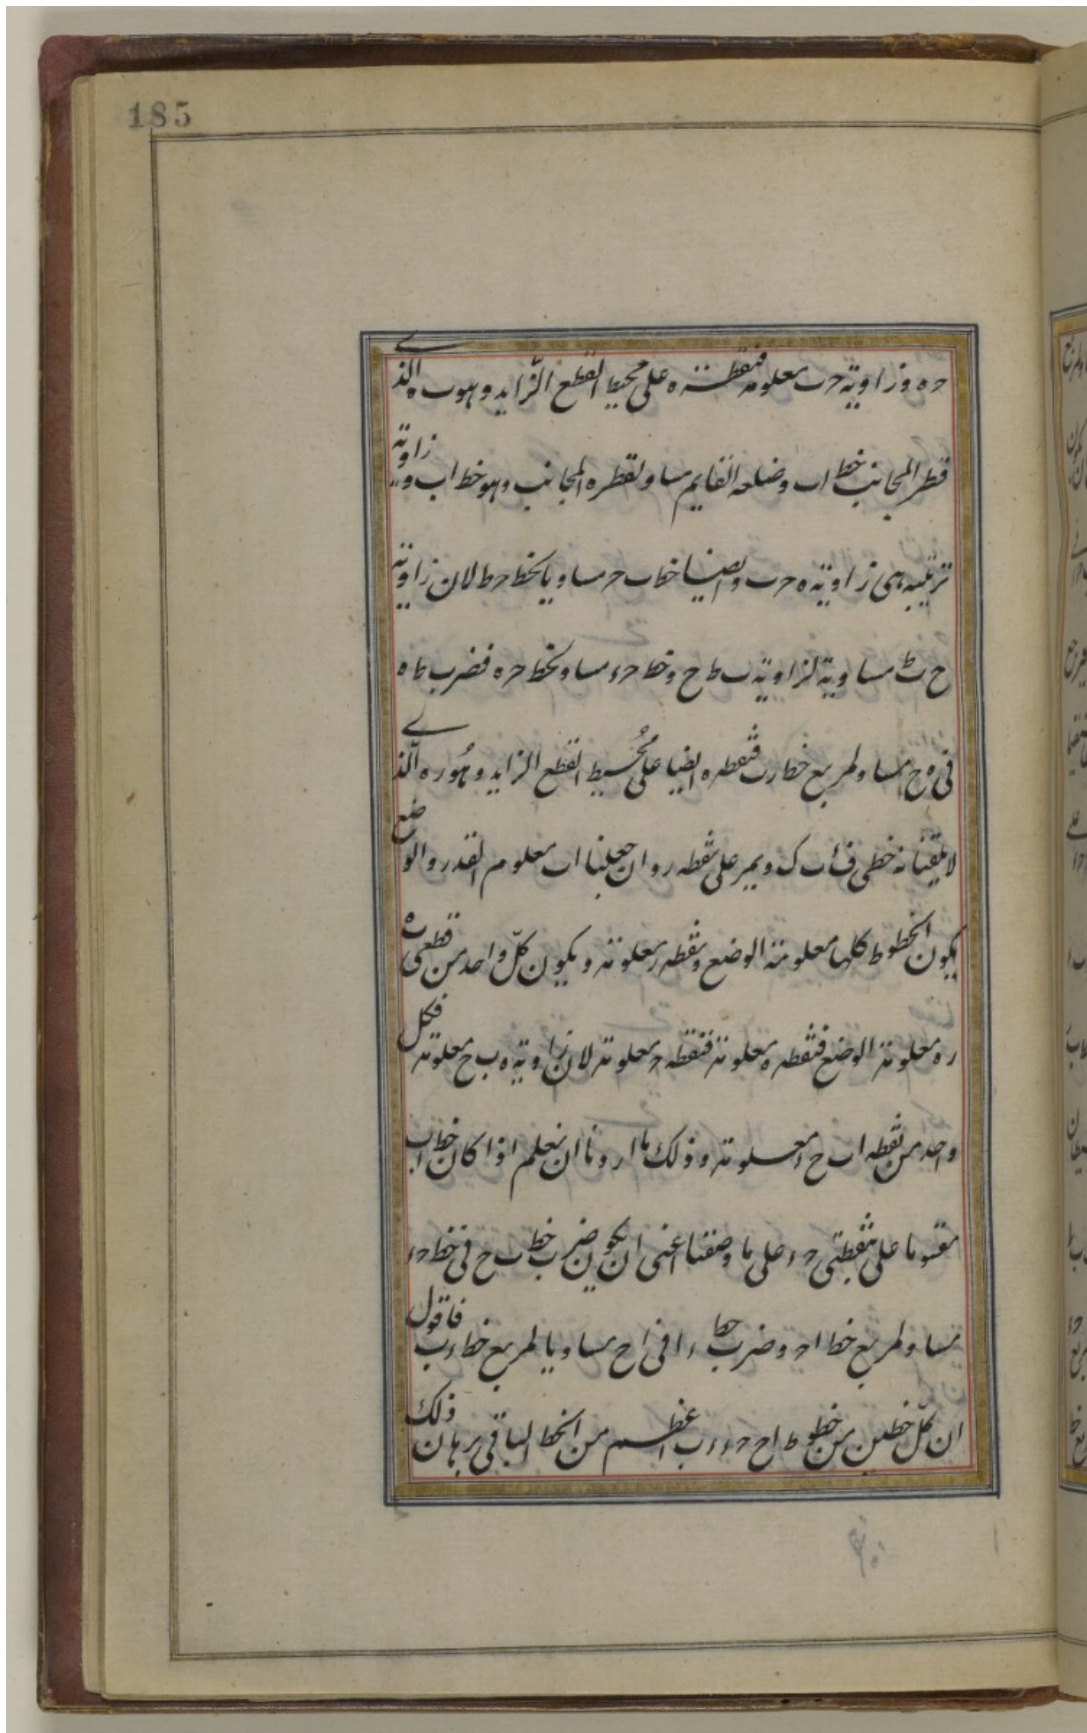 185
حه وزاوية حب معلومة فنقطة ه على محيط القطع الزايد وهو ب ه الذي
قطر المجانب خط اب وضلعه القايم مساو لقطره المجانب وهو خط اب و زاوية
ترتيبه هى زاوية ه ح ب وايضا خط ب ح مساويا لخط ح ط لان زاوية
ح ب ط مساوية لزاوية ب ط ح وخط حء مساو لخط ح ه فضرب ط ه
فى ه ح مساو لمربع خط ا ب فنقطة ه ايضا على محيط القطع الزايد وهو ر ه الذى
لا يلقيانه خطى ف ا ب ك ويمر على نقطه ر وان جعلنا اب معلوم القدر والوضع
يكون الخطوط كلها معلومة الوضع ونقطه ر معلومة ويكون كلّ واحد من قطعى ب ه
ر ه معلومة الوضع فنقطه ه معلومة فنقطه ح معلومة لان زاوية ه ب ح معلومة فكل
واحد من نقطه ا ب ح ء معلومة وذلك ما اردنا ان نعلم اذا كان خط اب
مقسوما على نقطتى ح ء على ما وصفنا اعنى ان يكون ضرب خط ب ح فى خط ح ء
مساو لمربع خط ا ح وضرب خط ء ا فى ا ح مساويا لمربع خط ء ب فاقول
ان كلّ خطين من خطوط ا ح ح ء ء ب اعظم من الخط الباقى برهان ذلك